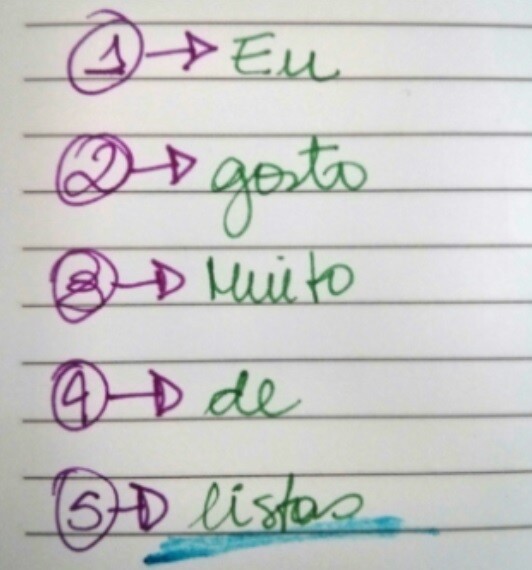 1 → Eu
2 → gosto
3 → Muito
4 → de
5 → listas